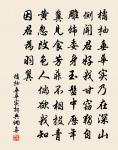 橘柚垂華實乃在深山
側聞君好我甘竊獨自
雕飾委身玉盤中歷年
冀見食芳菲不相投青
黃忽改色人儻欲我知
因君為羽翼
橘柚垂華實朝與佩委